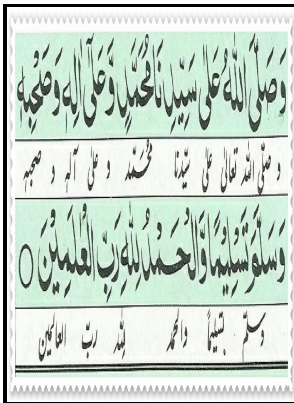 وَصَلَّی اللّٰهُ عَلٰی سَیِّدِنَا مُحَمَّدٍ وَّعَلٰۤی اٰلِهٖ وَصَحْبِهٖ
و صلّی اللہ تعالیٰ علی سیّدنا محمّد و علی آلہ و صحبہ
وَسَلَّمَ تَسْلِیْمًا وَّالْحَمْدُ لِلّٰهِ رَبِّ الْعٰلَمِیْنَ ○
وسلّم تسلیمًا والحمد للہ ربّ العالمین